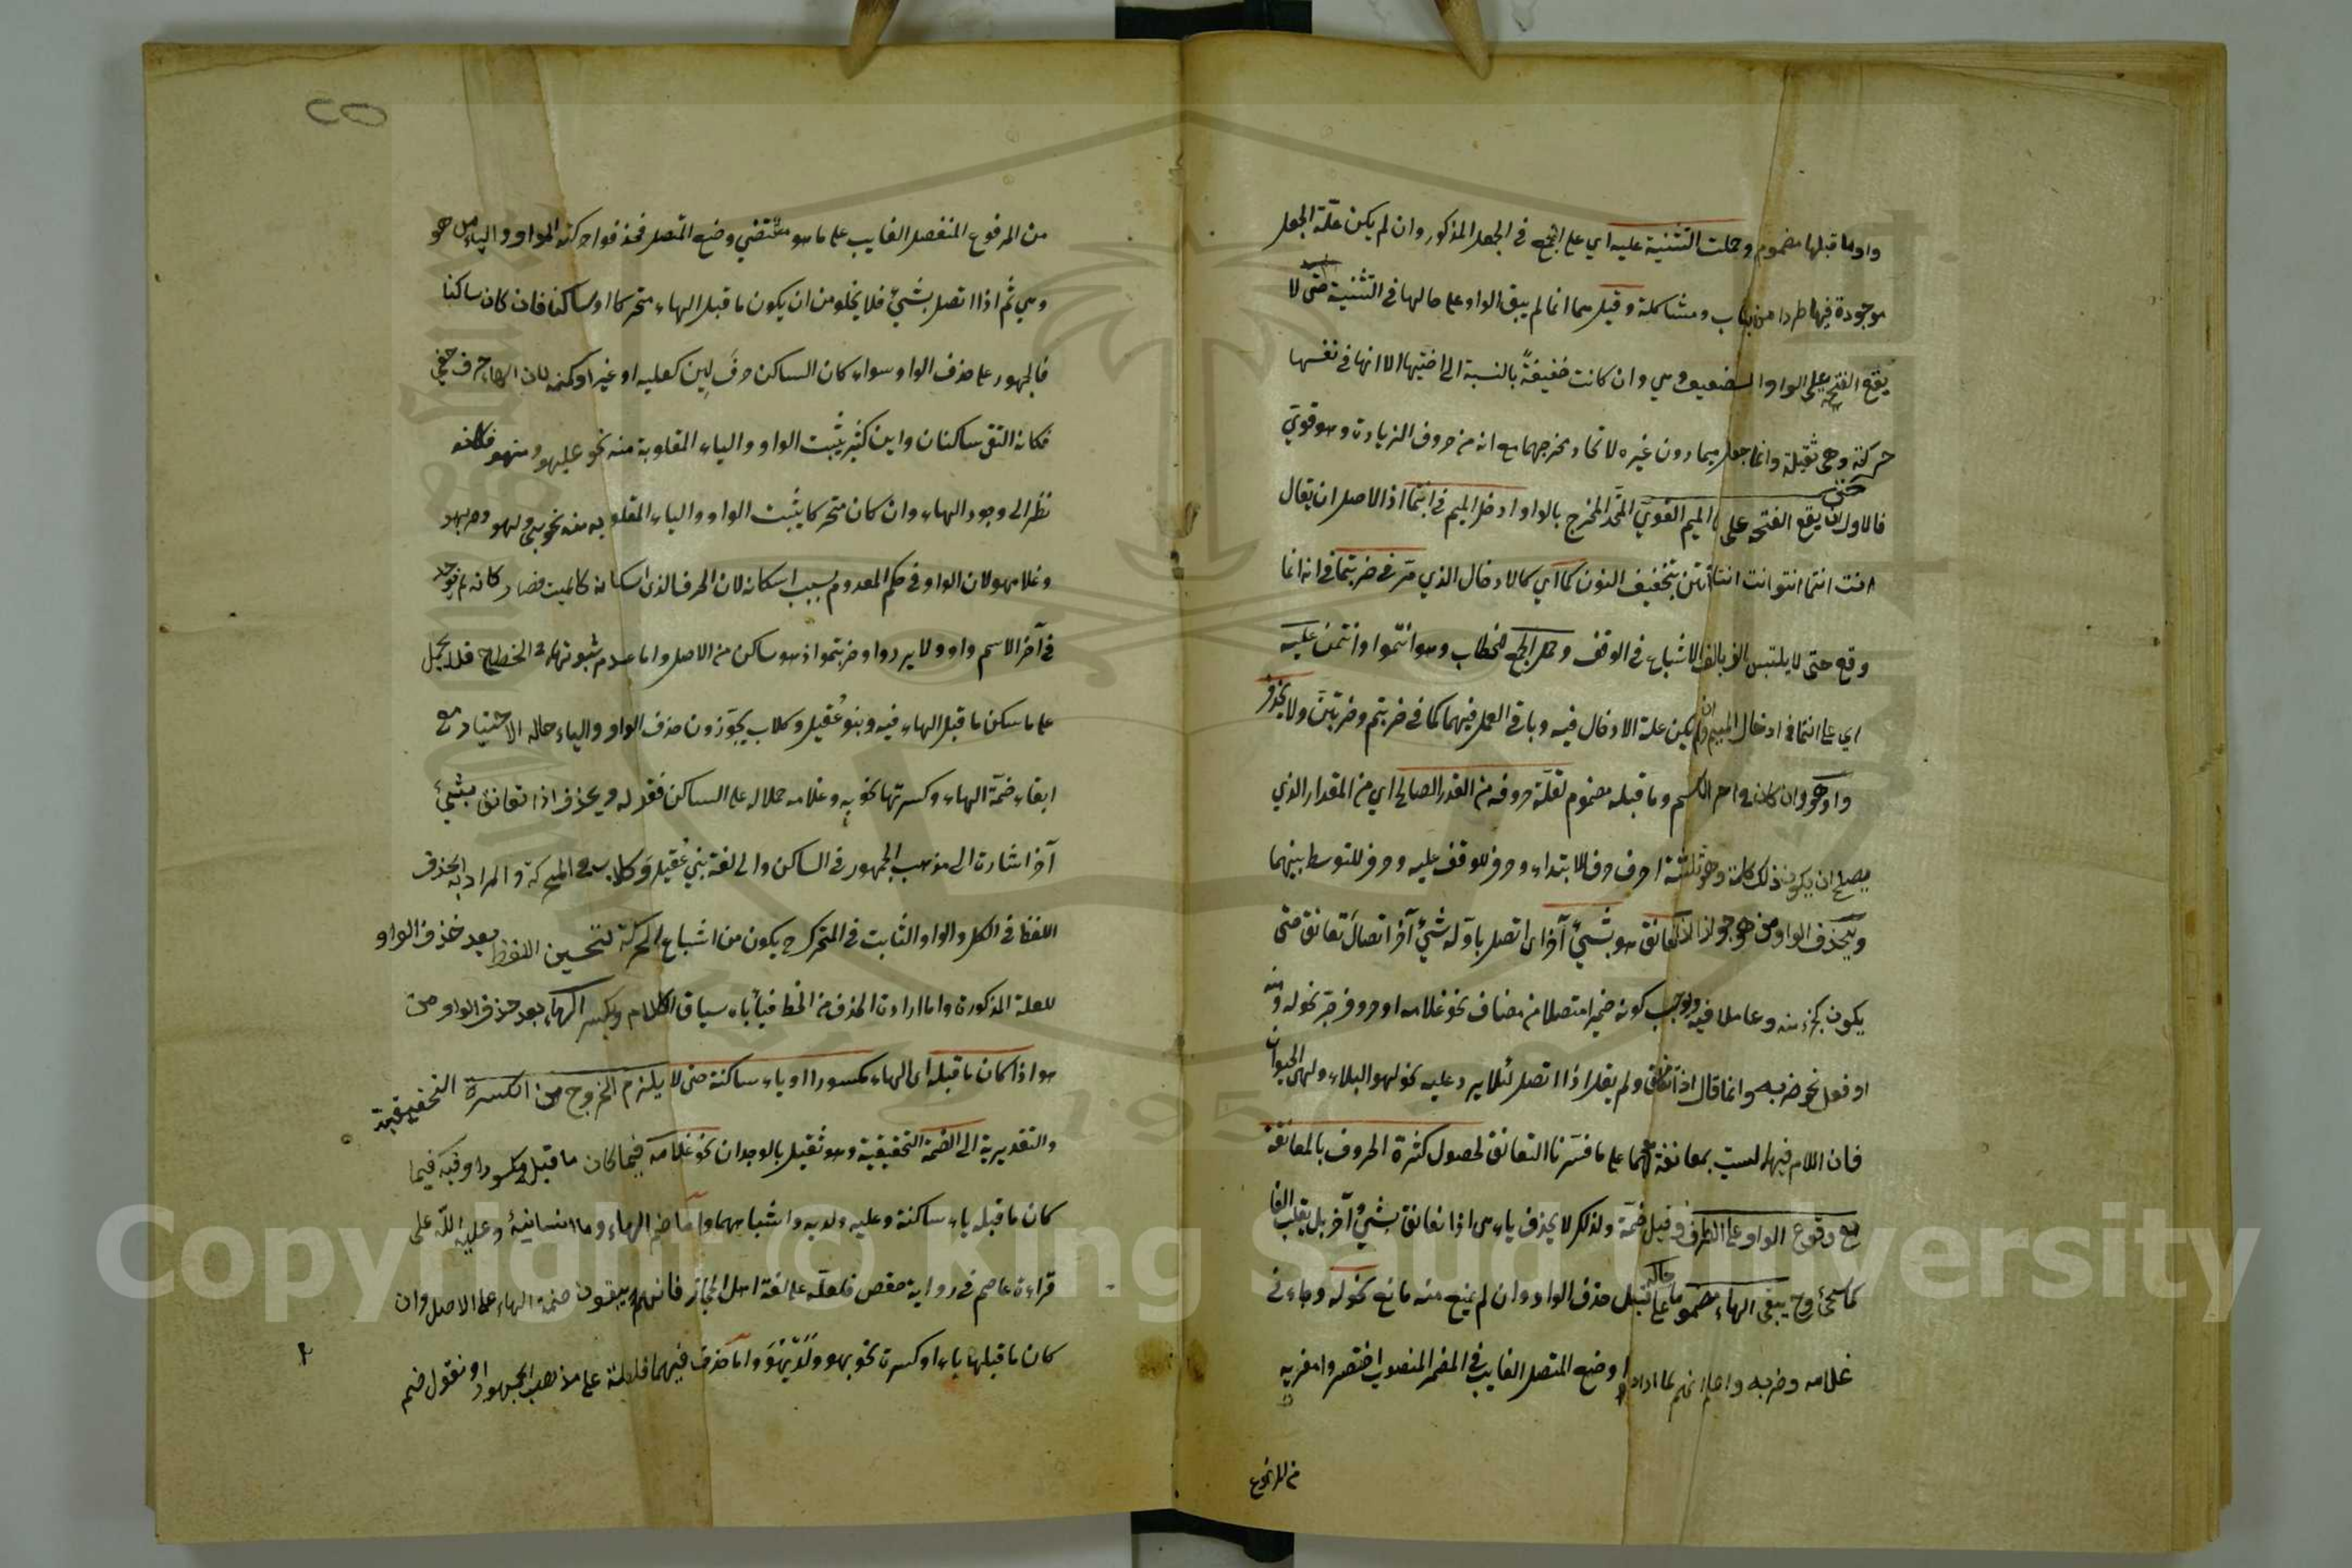 واو ما قبلها مضموم وحملت التثنية عليه اي على الجمع في الجعل المذكور وان لم يكن علّة الجعل
موجودة فيها طردا من باب ومشاكلة وقيل هما انما لم يبق الواو على حالها في التثنية حتى لا
يقع الفتحة على الواو الضعيف وهي وان كانت خفيفةً بالنسبة الى اختيها الا انها في نفسها
حركة وهى ثقيلة وانما جعل ميما دون غيره لاتحاد مخرجهما مع انه من حروف الزيادة وهو قويّ
فالاولى ان يقع الفتحة على الميم القويّ المتّحد المخرج بالواو ادخل الميم في انتما اذ الاصل ان يقال
انت انتما انتو انت انتا انتن بتخفيف النون كما اي كالادخال الذي مرّ في ضربتما في انه انما
وقع حتى لا يلتبس الف بالف الاشباع في الوقف وحمل الجمع المخطاب وهو انتموا وانتمن عليه
اي على انتما في ادخال الميم وان لم يكن علة الادخال فيه وباقي العمل فيهما كما في ضربتم وضربتنّ ولا يحذف
واو هو وان كان في اخر الاسم وما قبله مضموم لقلّة حروفه من القدر الصالح اي من المقدار الذي
يصلح ان يكون ذلك كلمة وهو ثلثة احرف حرف للابتداء وحرف للوقف عليه وحرف للتوسط بينهما
ويحذف الواو من هو جوازا اذا تعانق هو بشيئ آخر اى اتصل باوّله شيئ آخر اتصال تعانق حتى
يكون كجزء منه وعاملا فيه ولوجب كونه ضميرا متصلا من مضاف نحو غلامه او حروف جرّ نحو له ومنه
او فعل نحو ضربه وانما قال اذا تعانق ولم يقل اذا اتصل لئلا يرد عليه نحو لهو البلاء ولهى الحيوان
فان اللام فيها ليست بمعانقة لهما على ما فسّرنا التعانق لحصول كثرة الحروف بالمعانقة
مع وقوع الواو على الطرف وقبل ضمّة ولذلك لا يحذف ياء هى اذا تعانق بشيئ آخر بل يقلب الفا
كما سيجئ وح يبقى الهاء مضموما على حاله قبل حذف الواو وان لم يمنع منه مانع نحو له وجاء في
غلامه وضربه واعلم انهم لما ارادوا وضع المتصل الغايب في المضمر المنصوب اختصروا مفريه
من المرفوع
من المرفوع المنفصل الغايب على ما هو مقتضي وضع المتصل فحذفوا حركة الواو والياء من هو
وهي ثم اذا اتصل بشيئ فلا يخلو من ان يكون ما قبل الهاء متحركا او ساكنا فان كان ساكنا
فالجمهور على حذف الواو سواء كان الساكن حرفَ لِين كعليه او غيره كمنه لان الهاء حرف خفي
فكانه التقى ساكنان وابن كثير يثبت الواو والياء المقلوبة منه نحو عليهو ومنهو فكانه
نظر الى وجود الهاء وان كان متحركا يثبت الواو والياء المقلوبه منه نحو بهي ولهو وضربهو
وغلامهو لان الواو في حكم المعدوم بسبب اسكانه لان الحرف الذي اسكانه كالميت فصار كانه لم يوجد
في آخر الاسم واو ولا يرد واو ضربتموا اذ هو ساكن من الاصل واما عدم ثبوتها في الخط فلا يحمل
على ما سكن ما قبل الهاء فيه وبنو عُقيل وكلاب يجوّزون حذف الواو والياء حاله الاختيار مع
ابقاء ضمّة الهاء وكسرتها نحو به وغلامه حملا له على الساكن فقوله ويحذف اذا تعانق بشيئ
آخر اشارة الى مذهب الجمهور في الساكن والى لغة بني عُقيل وكلاب في المتحركة والمراد بالحذف
اللفظ في الكل والواو الثابت في المتحرك ح يكون من اشباع الحركة لتحسين اللفظ بعد حذف الواو
للعلة المذكورة واما ارادة الحذف من الخط فيأباه سياق الكلام ويكسر الهاء بعد حذف الواو من
هو اذا كان ما قبله اى الهاء مكسورا او ياء ساكنة حتى لا يلزم الخروج من الكسرة التحقيقية
والتقديرية الى الضمة التحقيقية وهو ثقيل بالوجدان نحو غلامه فيما كان ما قبل مكسورا وفيه فيما
كان ما قبله ياء ساكنة وعليه ولديه واشباههما وامّا ضم الهاء وما انسانيهُ وعليهُ اللّه على
قراءة عاصم في رواية حفص فلعلّه على لغة اهل الحجاز فانهم يبقون ضمة الهاء على الاصل وان
كان ما قبلها ياء او كسرة نحو بهو ولَدَيْهُوَ وامّا حذف فيهما فلعلّه على مذهب الجمهور او نقول ضم